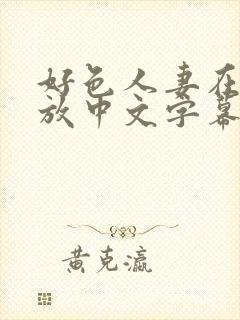 好色人妻在
放中文字幕
黄克瀛